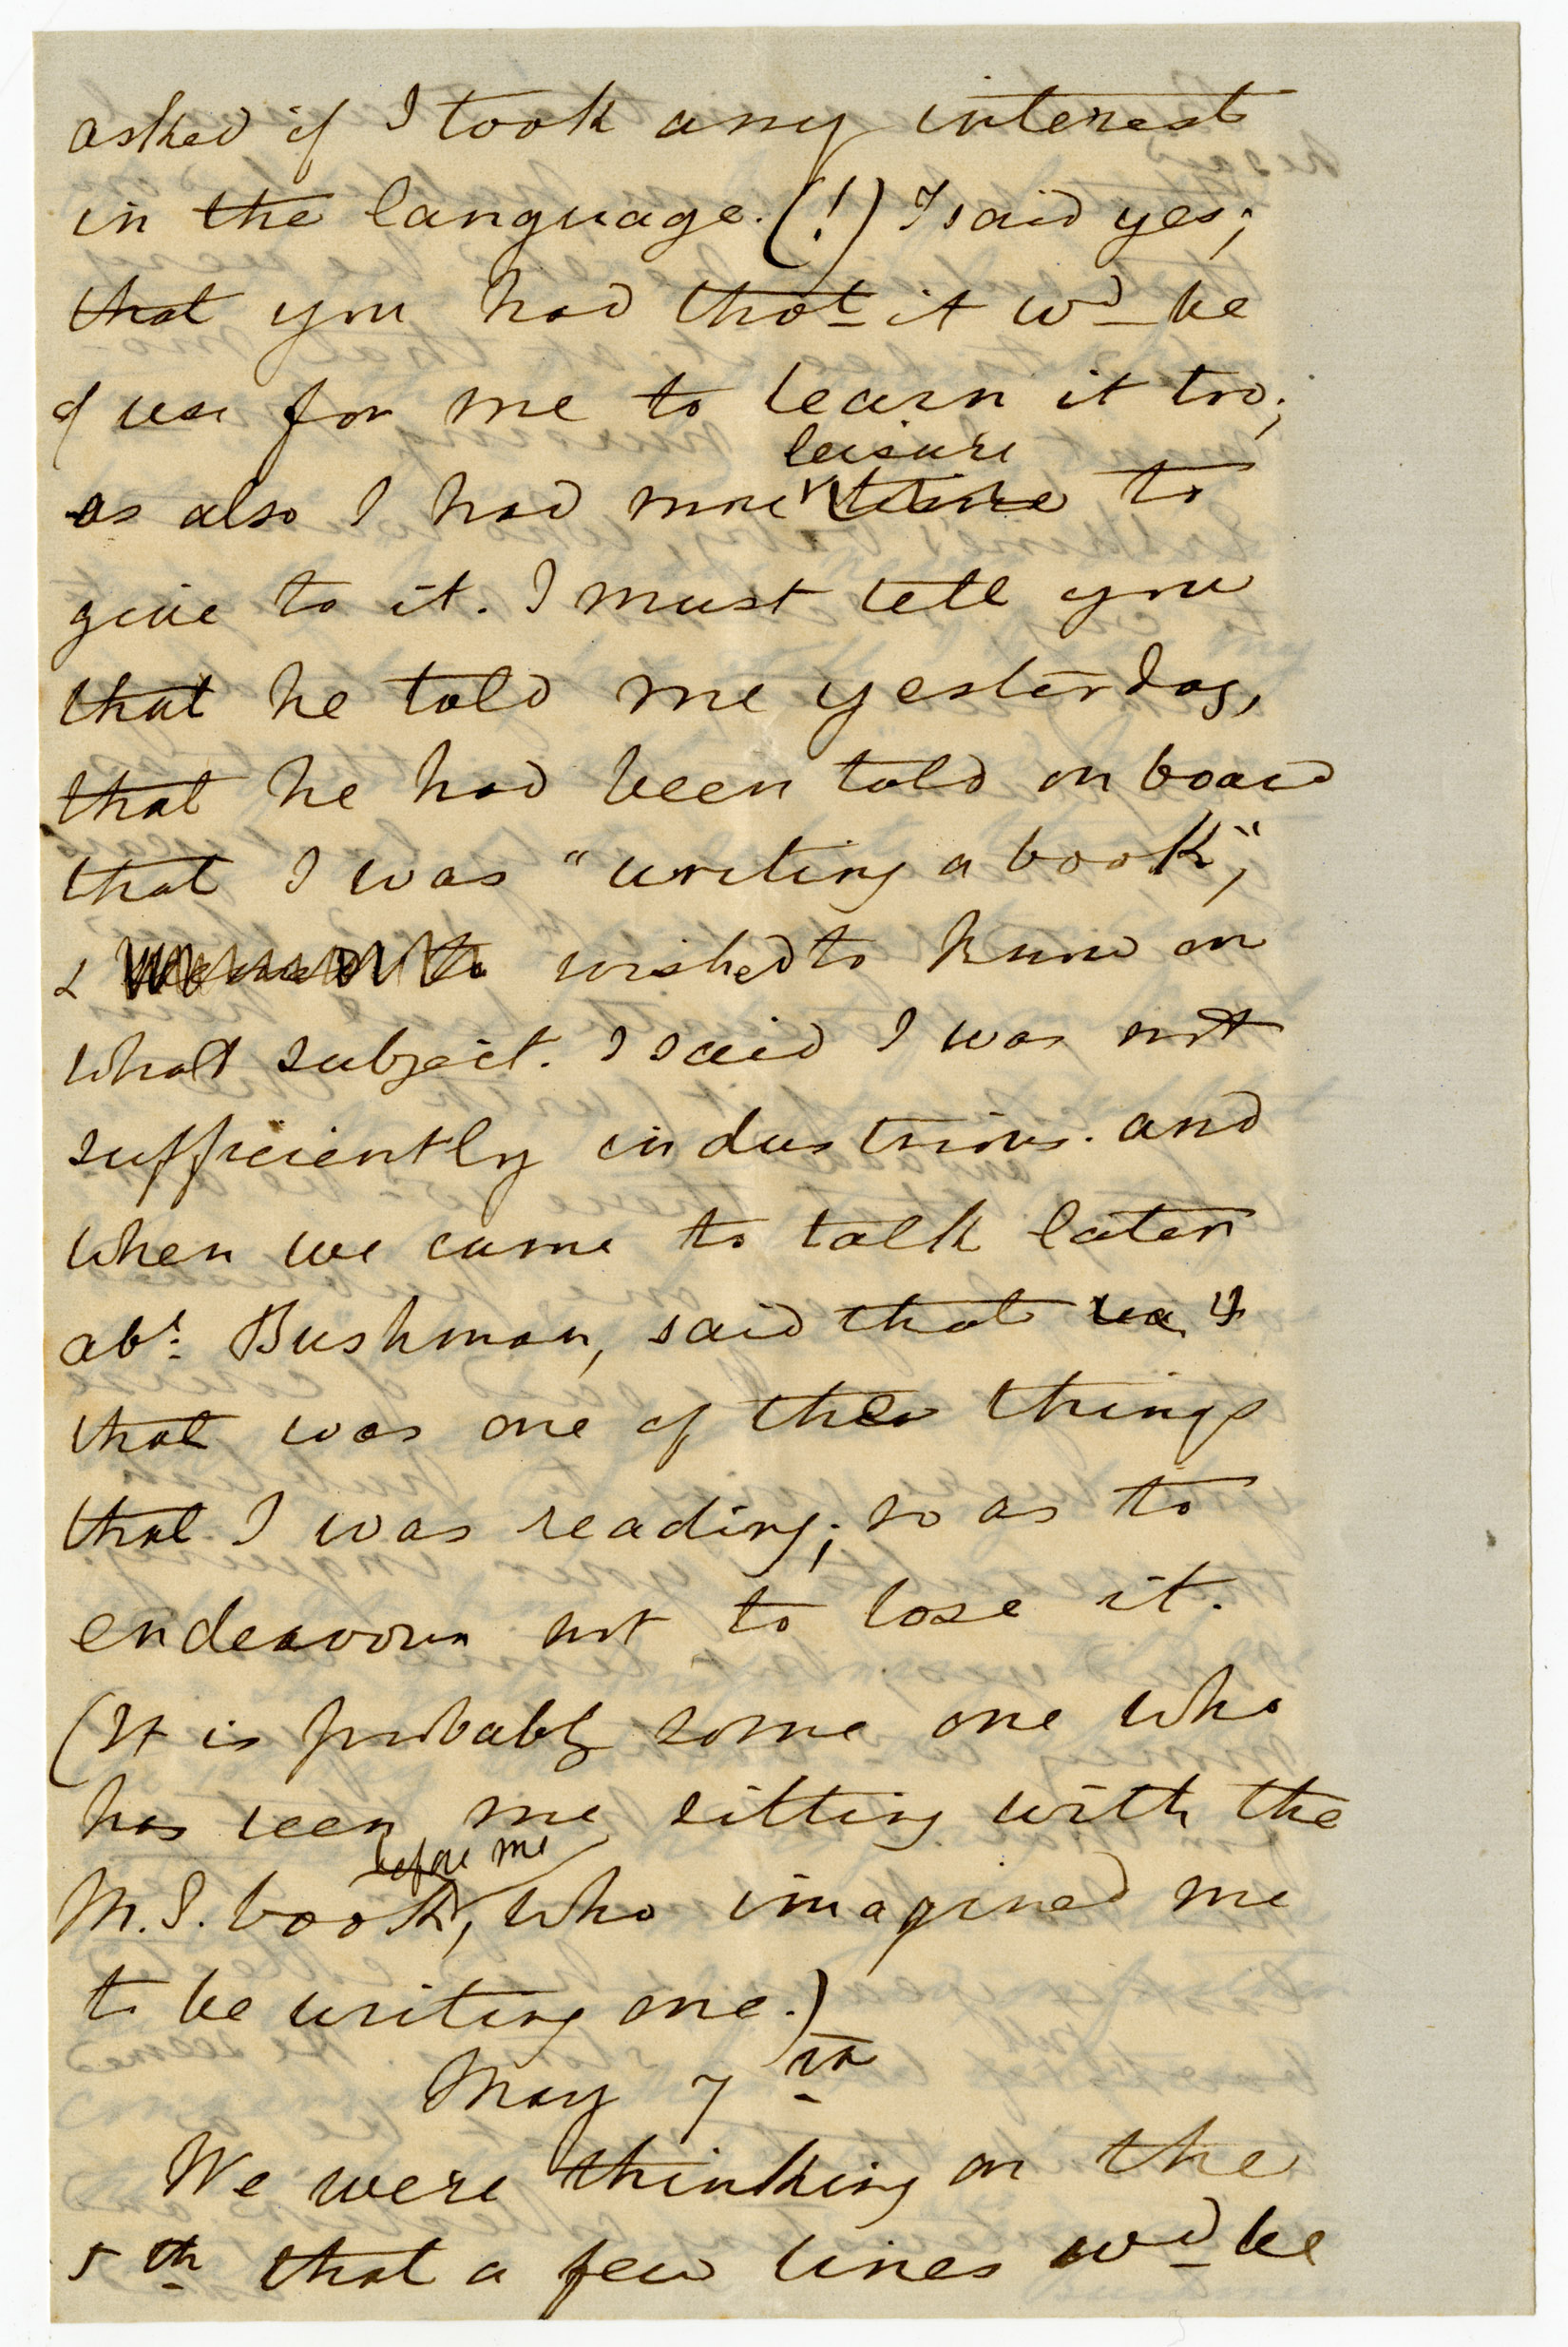 asked if I took any interest
in the language. (!) I said yes;
that you had thot it wd be
of use for me to learn it too;
leisure
as also I had more time to
give to it. I must tell you
that he told me yesterday,
that he had been told on board
that I was "writing a book",
& wished to know on
what subject. I said I was not
sufficiently industrious. and
when we came to talk later
abt Bushman, said that
that was one of the things
that I was reading; so as to
endeavour not to lose it.
(It is probably some one who
has seen me sitting with the
before me
M.S. book, who imagined me
to be writing one.)
May 7th
We were thinking on the
5th that a few lines wd be